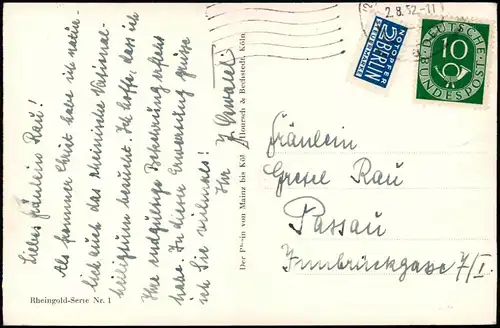 Liebes Fräulein Rau!
Als frommer Christ habe ich natür-
lich auch das rheinische National-
heiligtum besucht. Ich hoffe, dass ich
Ihre endgültige Bekehrung erlebt
habe. In dieser Erwartung grüsse
ich Sie vielmals!
Ihr
Rheingold-Serie Nr. 1
Der Rhein von Mainz bis Köln
Hoursch & Bechstedt, Köln
2.8.52.-11
NOTOPFER
2 BERLIN
STEUERMARKE
DEUTSCHE BUNDESPOST
10
Fräulein
Gretel Rau
Passau
Innbrückgasse 7/I